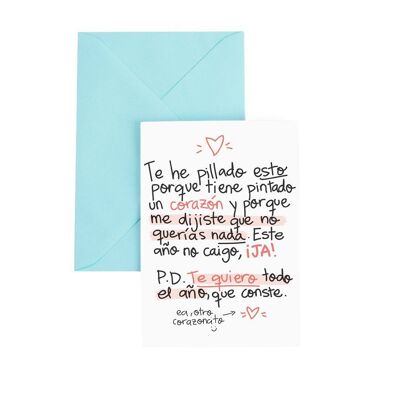 Te he pillado esto
porque tiene pintado
un corazón y porque
me dijiste que no
querías nada. Este
año no caigo, ¡JA!
P.D. Te quiero todo
el año, que conste.
ea, otro
corazonato